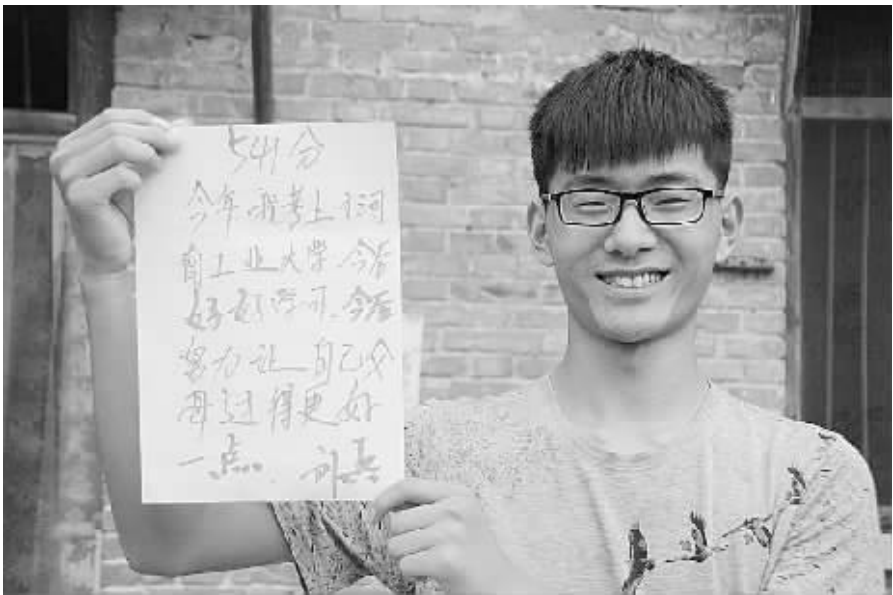 541分
今年我考上了河
南工业大学.今后
好好学习.今后
努力让自己父
母过得更好
一点.